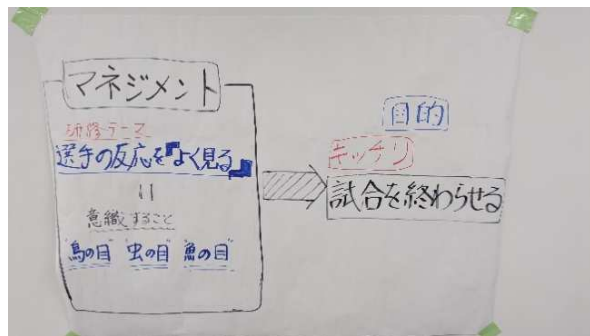 マネジメント
研修テーマ
選手の反応を『よく見る』
||
意識すること
"鳥の目" "虫の目" "魚の目"
目的
キッチリ
試合を終わらせる